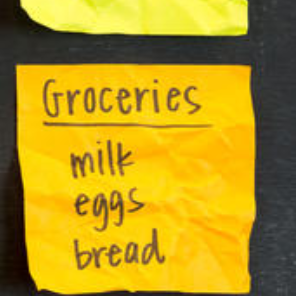 Groceries
milk
eggs
bread